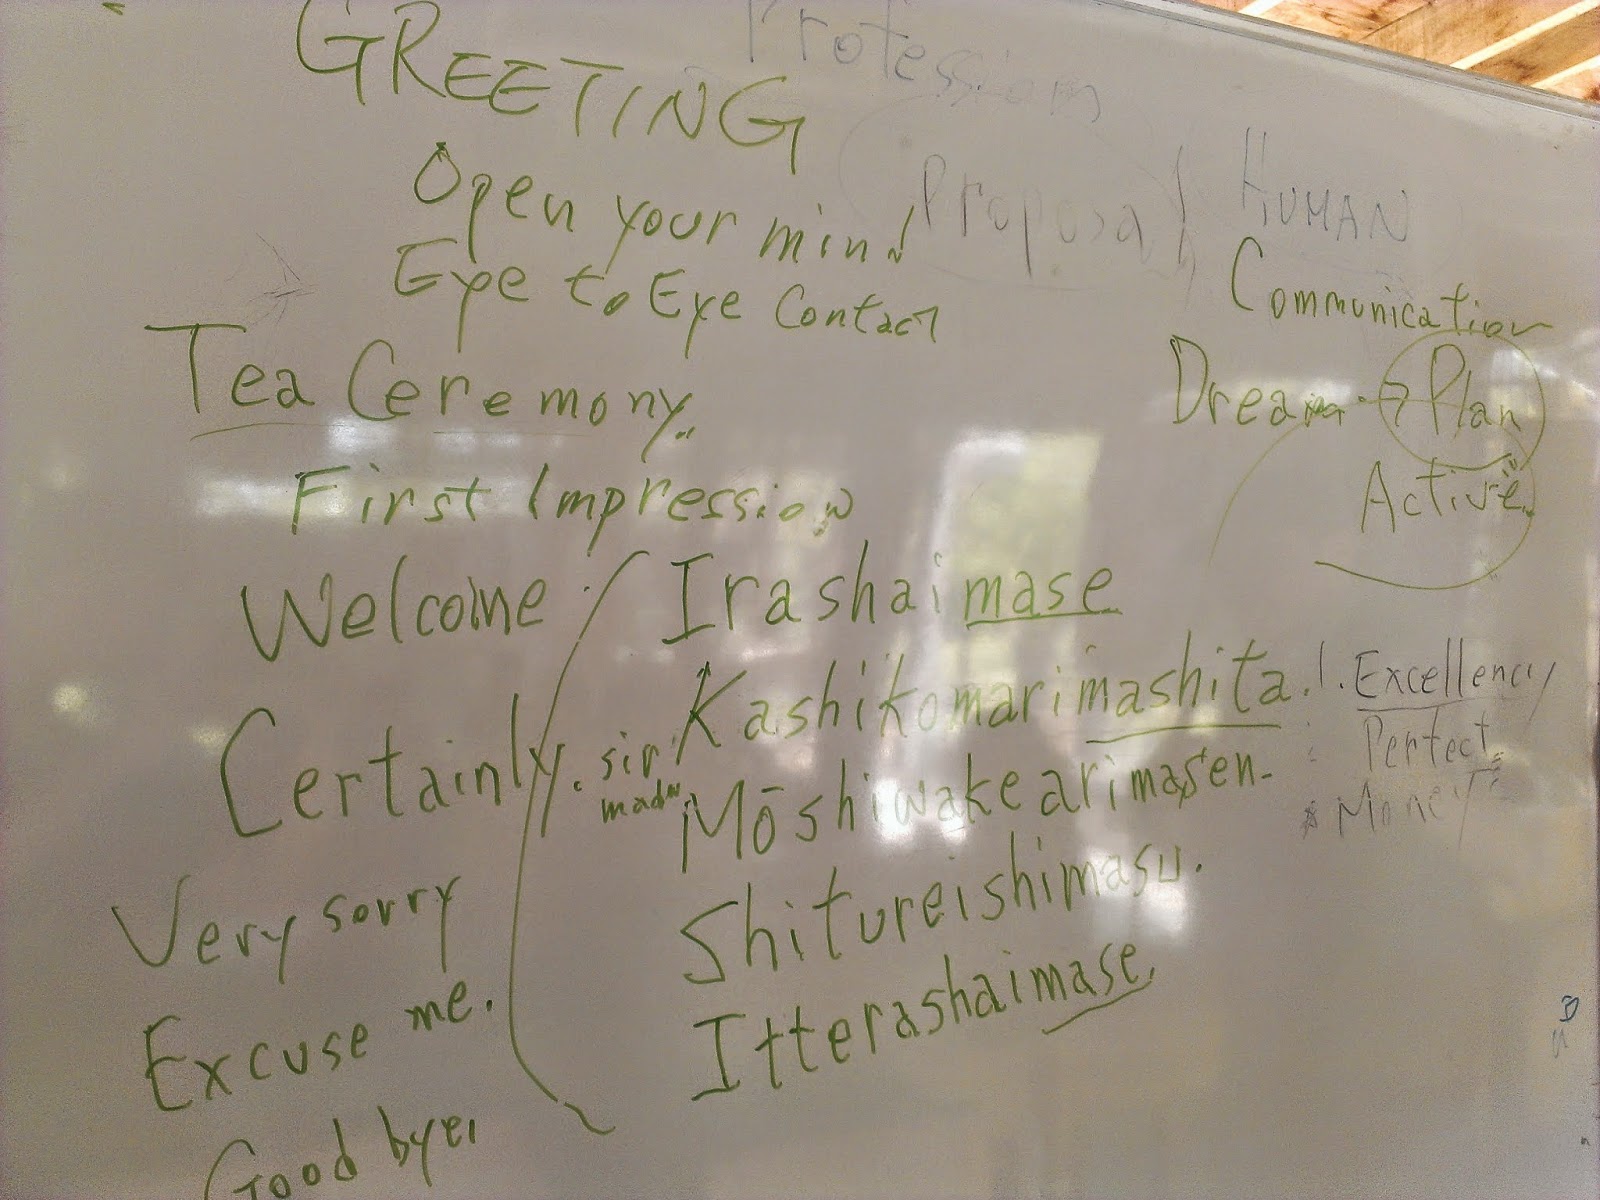 GREETING
Profession
Open your mind
Proposal
HUMAN
Eye to Eye Contact
Communication
Tea Ceremony
Dream → Plan
Active
First Impression
Welcome
Irashaimase
Certainly. sir
madam
Kashikomarimashita.
1. Excellency
Perfect
Money
Very sorry
Mōshiwakearimasen-
Excuse me.
Shitureishimasu.
Good bye.
Itterashaimase.